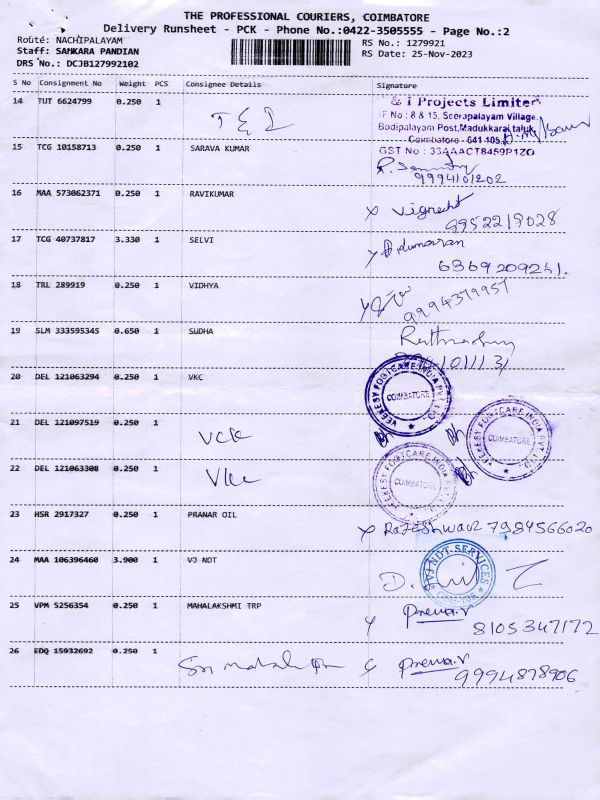 THE PROFESSIONAL COURIERS, COIMBATORE
Delivery Runsheet - PCK - Phone No.:0422-3505555 - Page No.:2
Route: NACHIPALAYAM
Staff: SANKARA PANDIAN
DRS No.: DCJB127992102
RS No.: 1279921
RS Date: 25-Nov-2023
S No Consignment No Weight PCS Consignee Details Signature
14 TUT 6624799 0.250 1
& T Projects Limited
F No : 8 & 15, Seerapalayam Village
Bodipalayam Post, Madukkarai taluk
Coimbatore - 641 105
GST No : 33AAACT8459P1ZO
15 TCG 10158713 0.250 1 SARAVA KUMAR
9994101202
16 MAA 573062371 0.250 1 RAVIKUMAR
x Vignesh
9952219028
17 TCG 40737817 3.330 1 SELVI
6369209241.
18 TRL 289919 0.250 1 VIDHYA
9994379957
19 SLM 333595345 0.650 1 SUDHA
20 DEL 121063294 0.250 1 VKC
VEEKESY FOOTCARE INDIA PVT LTD.
COIMBATORE
21 DEL 121097519 0.250 1 VCK
VEEKESY FOOTCARE INDIA PVT LTD.
COIMBATORE
22 DEL 121063308 0.250 1 VKC
VEEKESY FOOTCARE INDIA PVT LTD.
COIMBATORE
23 HSR 2917327 0.250 1 PRANAR OIL
x Rajeshwari 7984566020
24 MAA 106396460 3.900 1 VJ NDT
VJ NDT SERVICES
25 VPM 5256354 0.250 1 MAHALAKSHMI TRP
Prema.V
8105347172
26 EDQ 15932692 0.250 1 Sri
Prema.V
9994878906